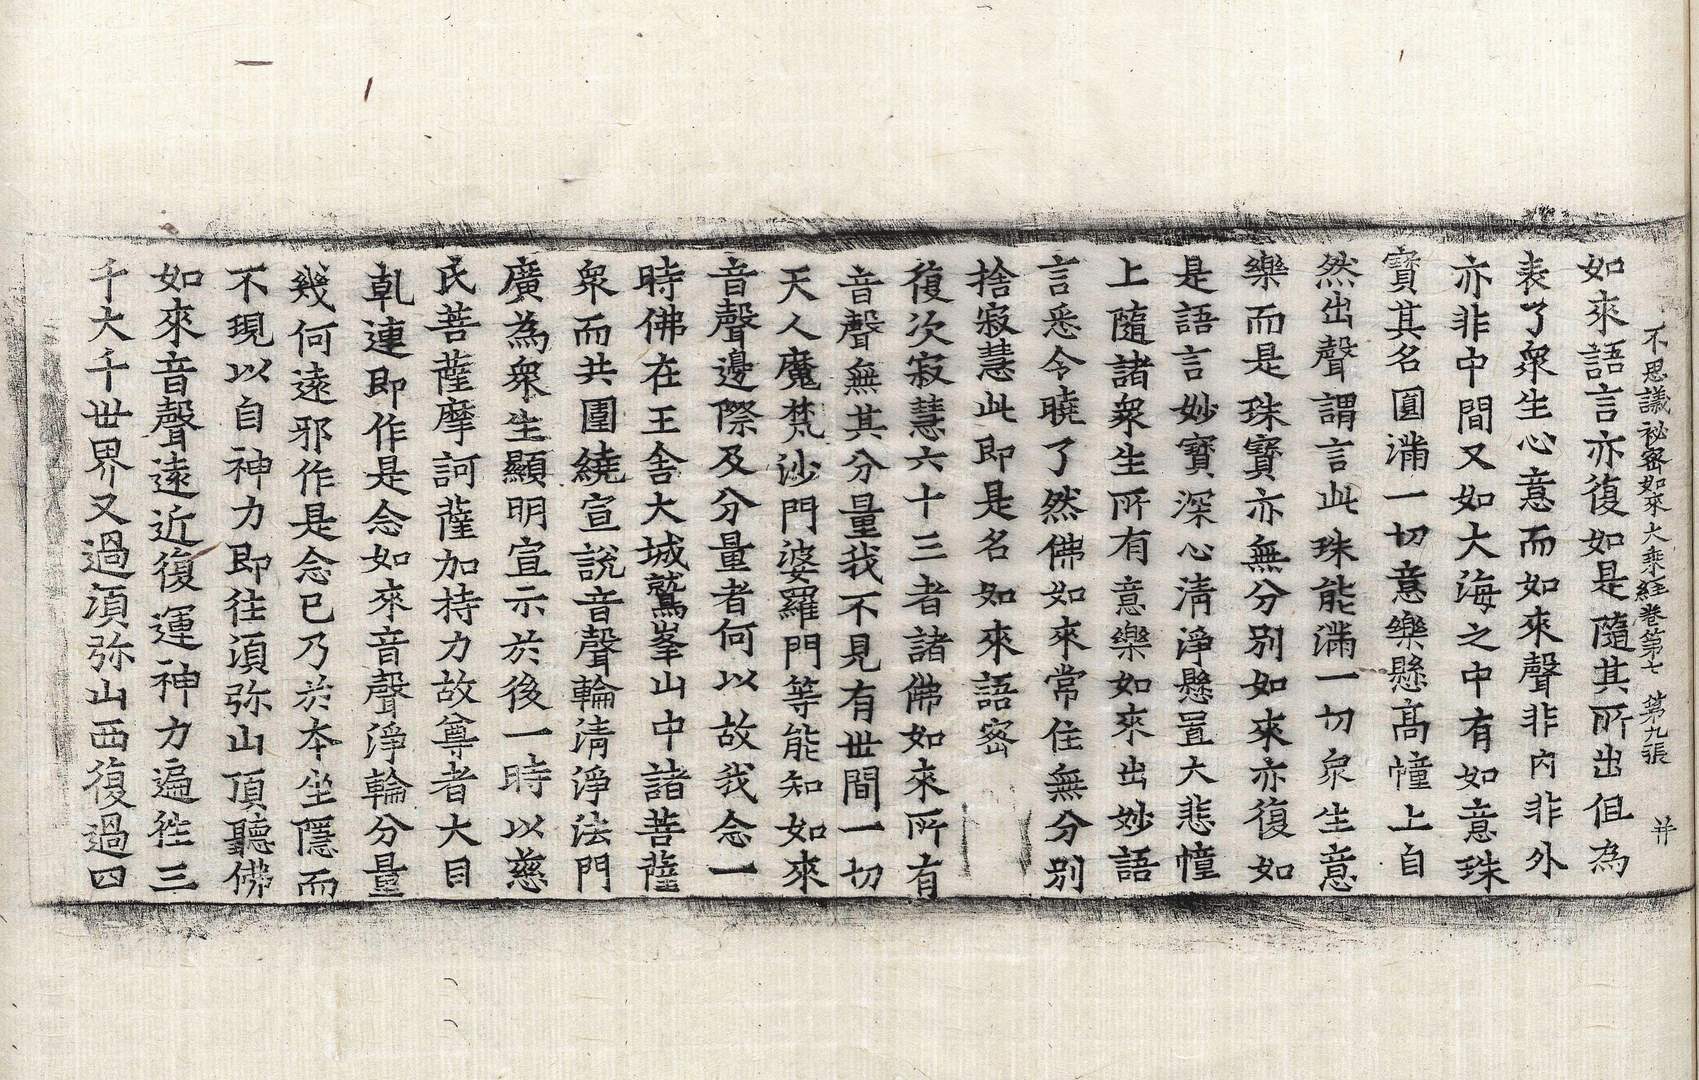 不思議祕密如來大乘經卷第七　第九張　并
如來語言亦復如是隨其所出但為
表了衆生心意而如來聲非內非外
亦非中間又如大海之中有如意珠
寶其名圓滿一切意樂懸高幢上自
然出聲謂言此珠能滿一切衆生意
樂而是珠寶亦無分別如來亦復如
是語言妙寶深心清淨懸置大悲幢
上隨諸衆生所有意樂如來出妙語
言悉令曉了然佛如來常住無分別
捨寂慧此即是名如來語密
復次寂慧六十三者諸佛如來所有
音聲無其分量我不見有世間一切
天人魔梵沙門婆羅門等能知如來
音聲邊際及分量者何以故我念一
時佛在王舍大城鷲峯山中諸菩薩
衆而共圍繞宣說音聲輪清淨法門
廣為衆生顯明宣示於後一時以慈
氏菩薩摩訶薩加持力故尊者大目
乹連即作是念如來音聲淨輪分量
幾何遠邪作是念已乃於本坐隱而
不現以自神力即往湏弥山頂聽佛
如來音聲遠近復運神力遍徃三
千大千世界又過湏弥山西復過四